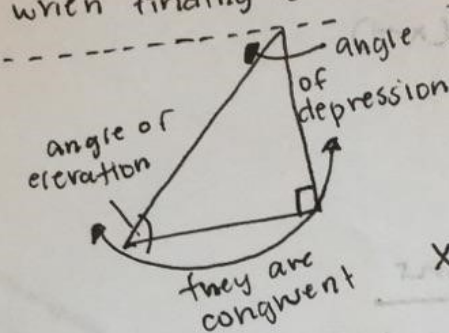 when finding
angle
of
depression
angle of
elevation
they are
congruent
X